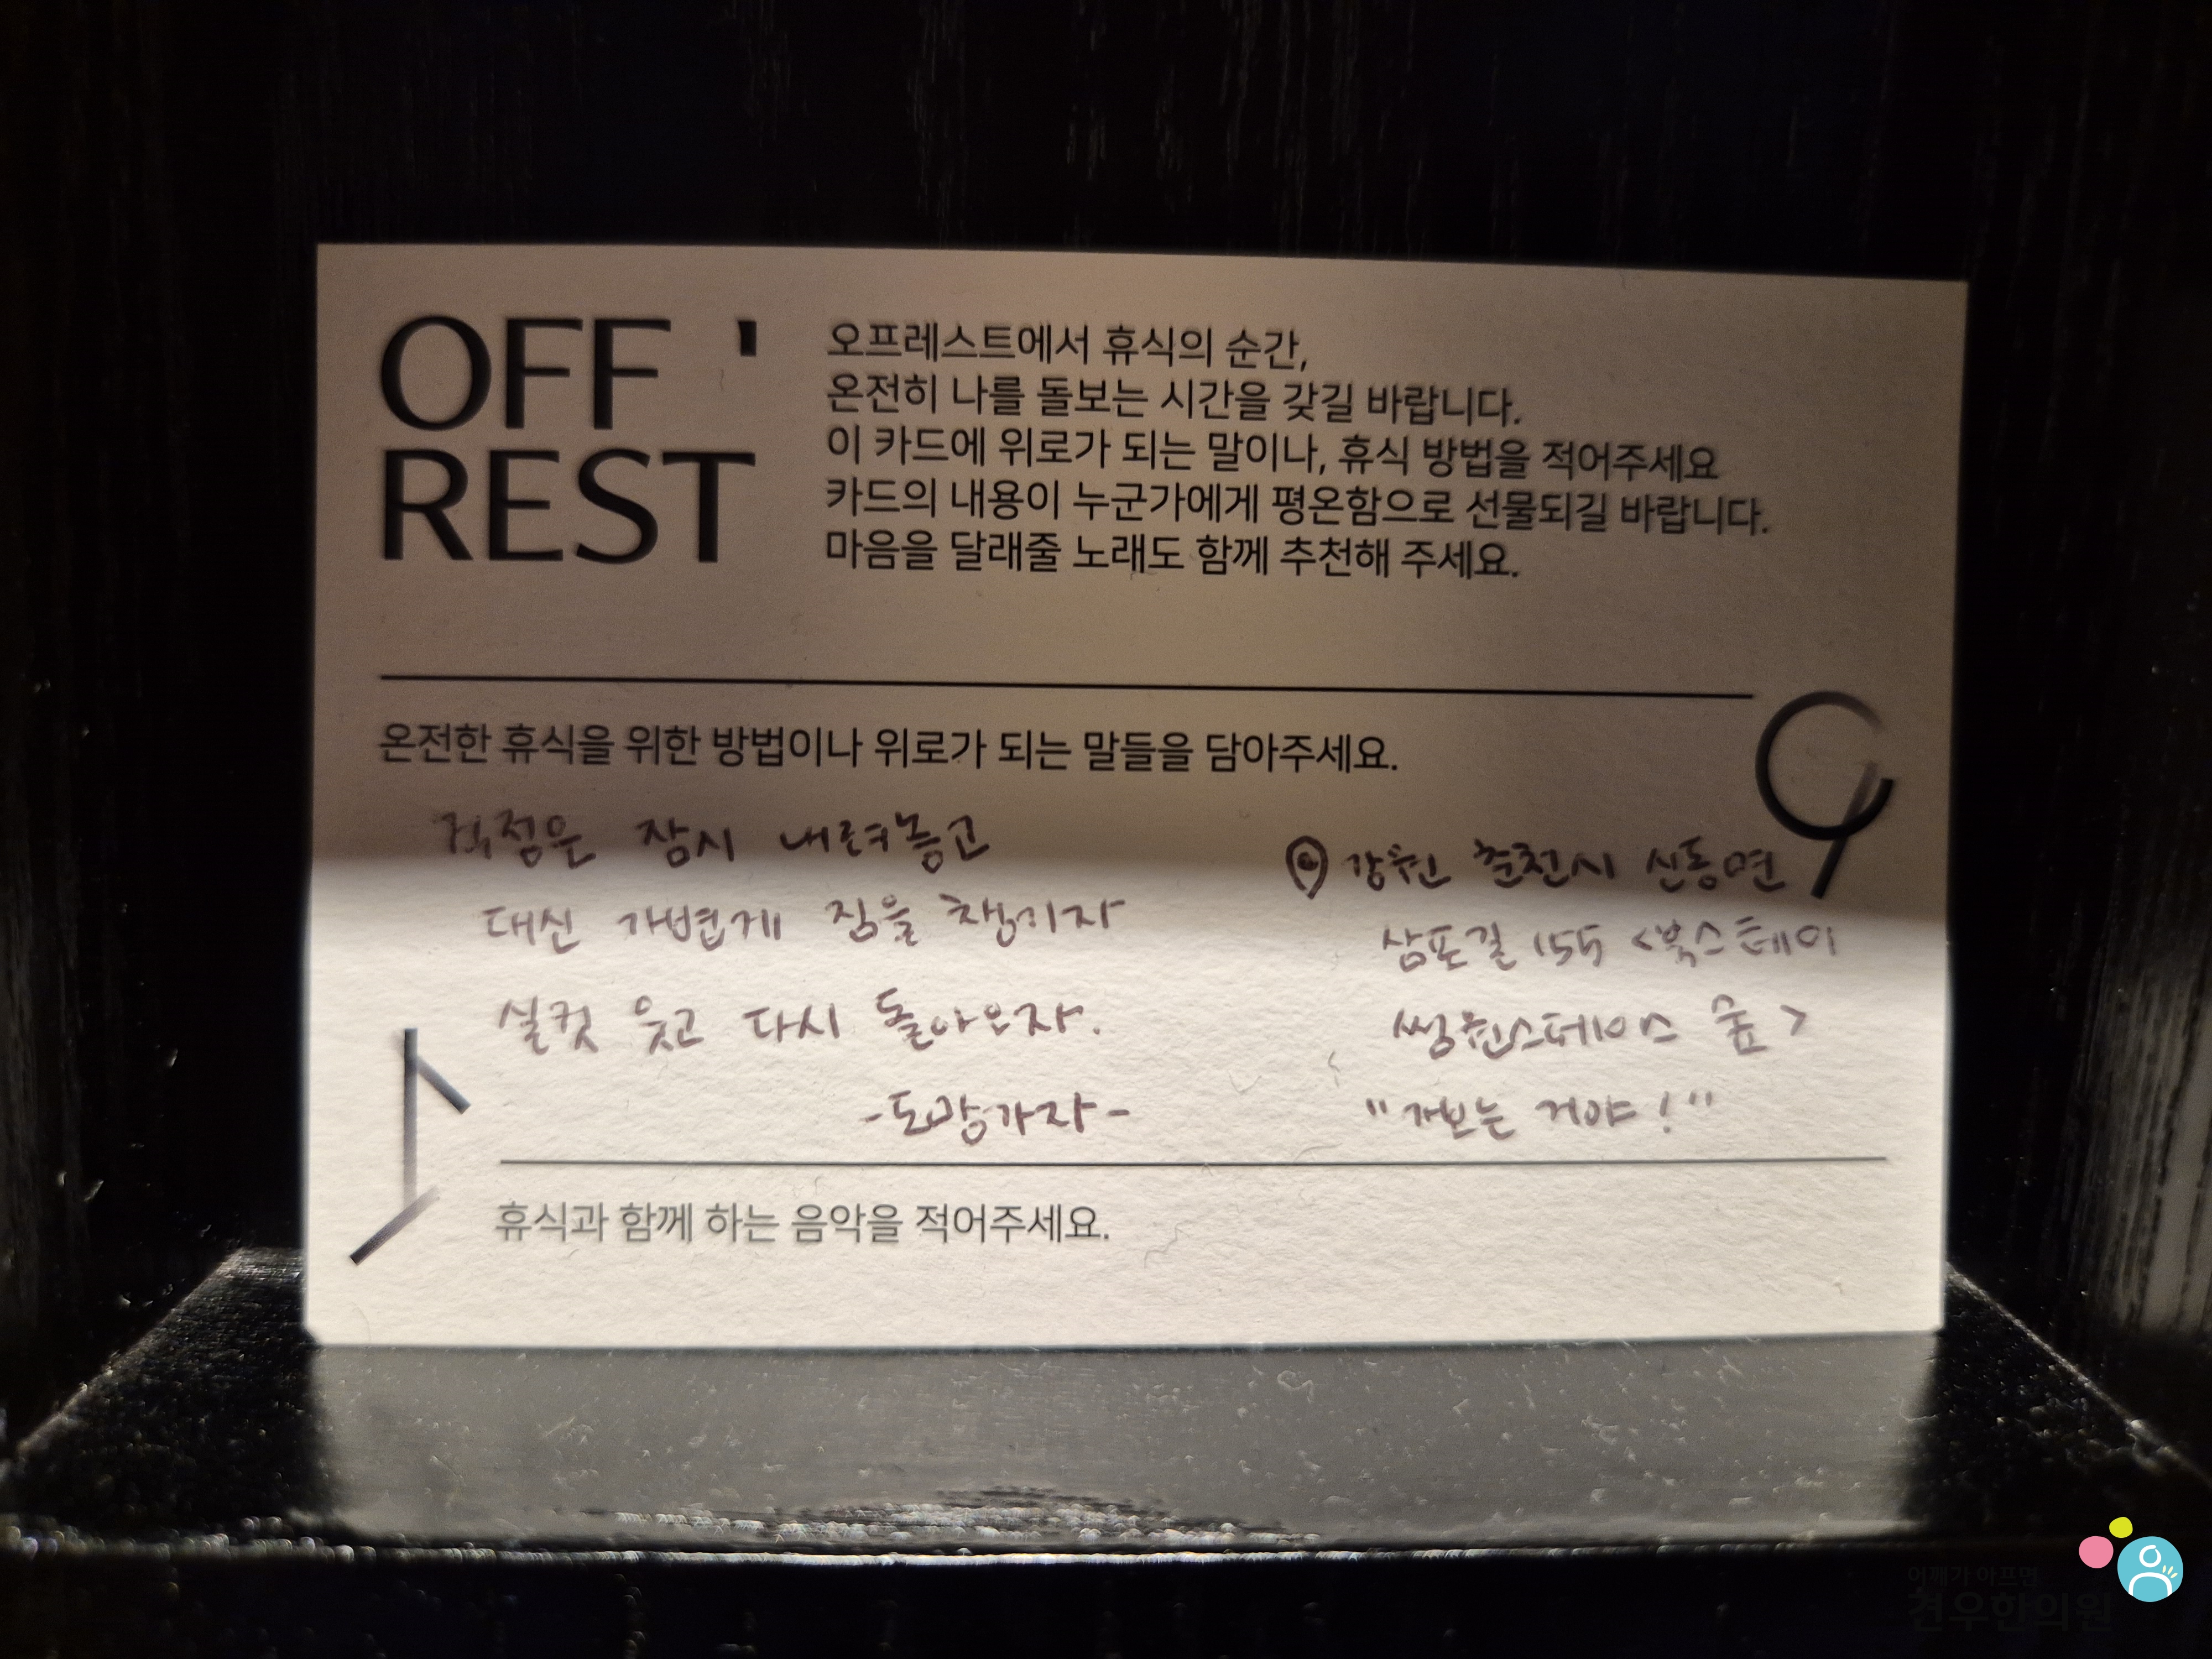 OFF '
REST
오프레스트에서 휴식의 순간,
온전히 나를 돌보는 시간을 갖길 바랍니다.
이 카드에 위로가 되는 말이나, 휴식 방법을 적어주세요
카드의 내용이 누군가에게 평온함으로 선물되길 바랍니다.
마음을 달래줄 노래도 함께 추천해 주세요.
온전한 휴식을 위한 방법이나 위로가 되는 말들을 담아주세요.
걱정은 잠시 내려놓고
대신 가볍게 짐을 챙기자
실컷 웃고 다시 돌아오자.
-도망가자-
강원 춘천시 신동면
삼포길 155 <북스테이
썽원스테이스 숲>
"가보는 거야!"
휴식과 함께 하는 음악을 적어주세요.
어깨가 아프면
견우한의원